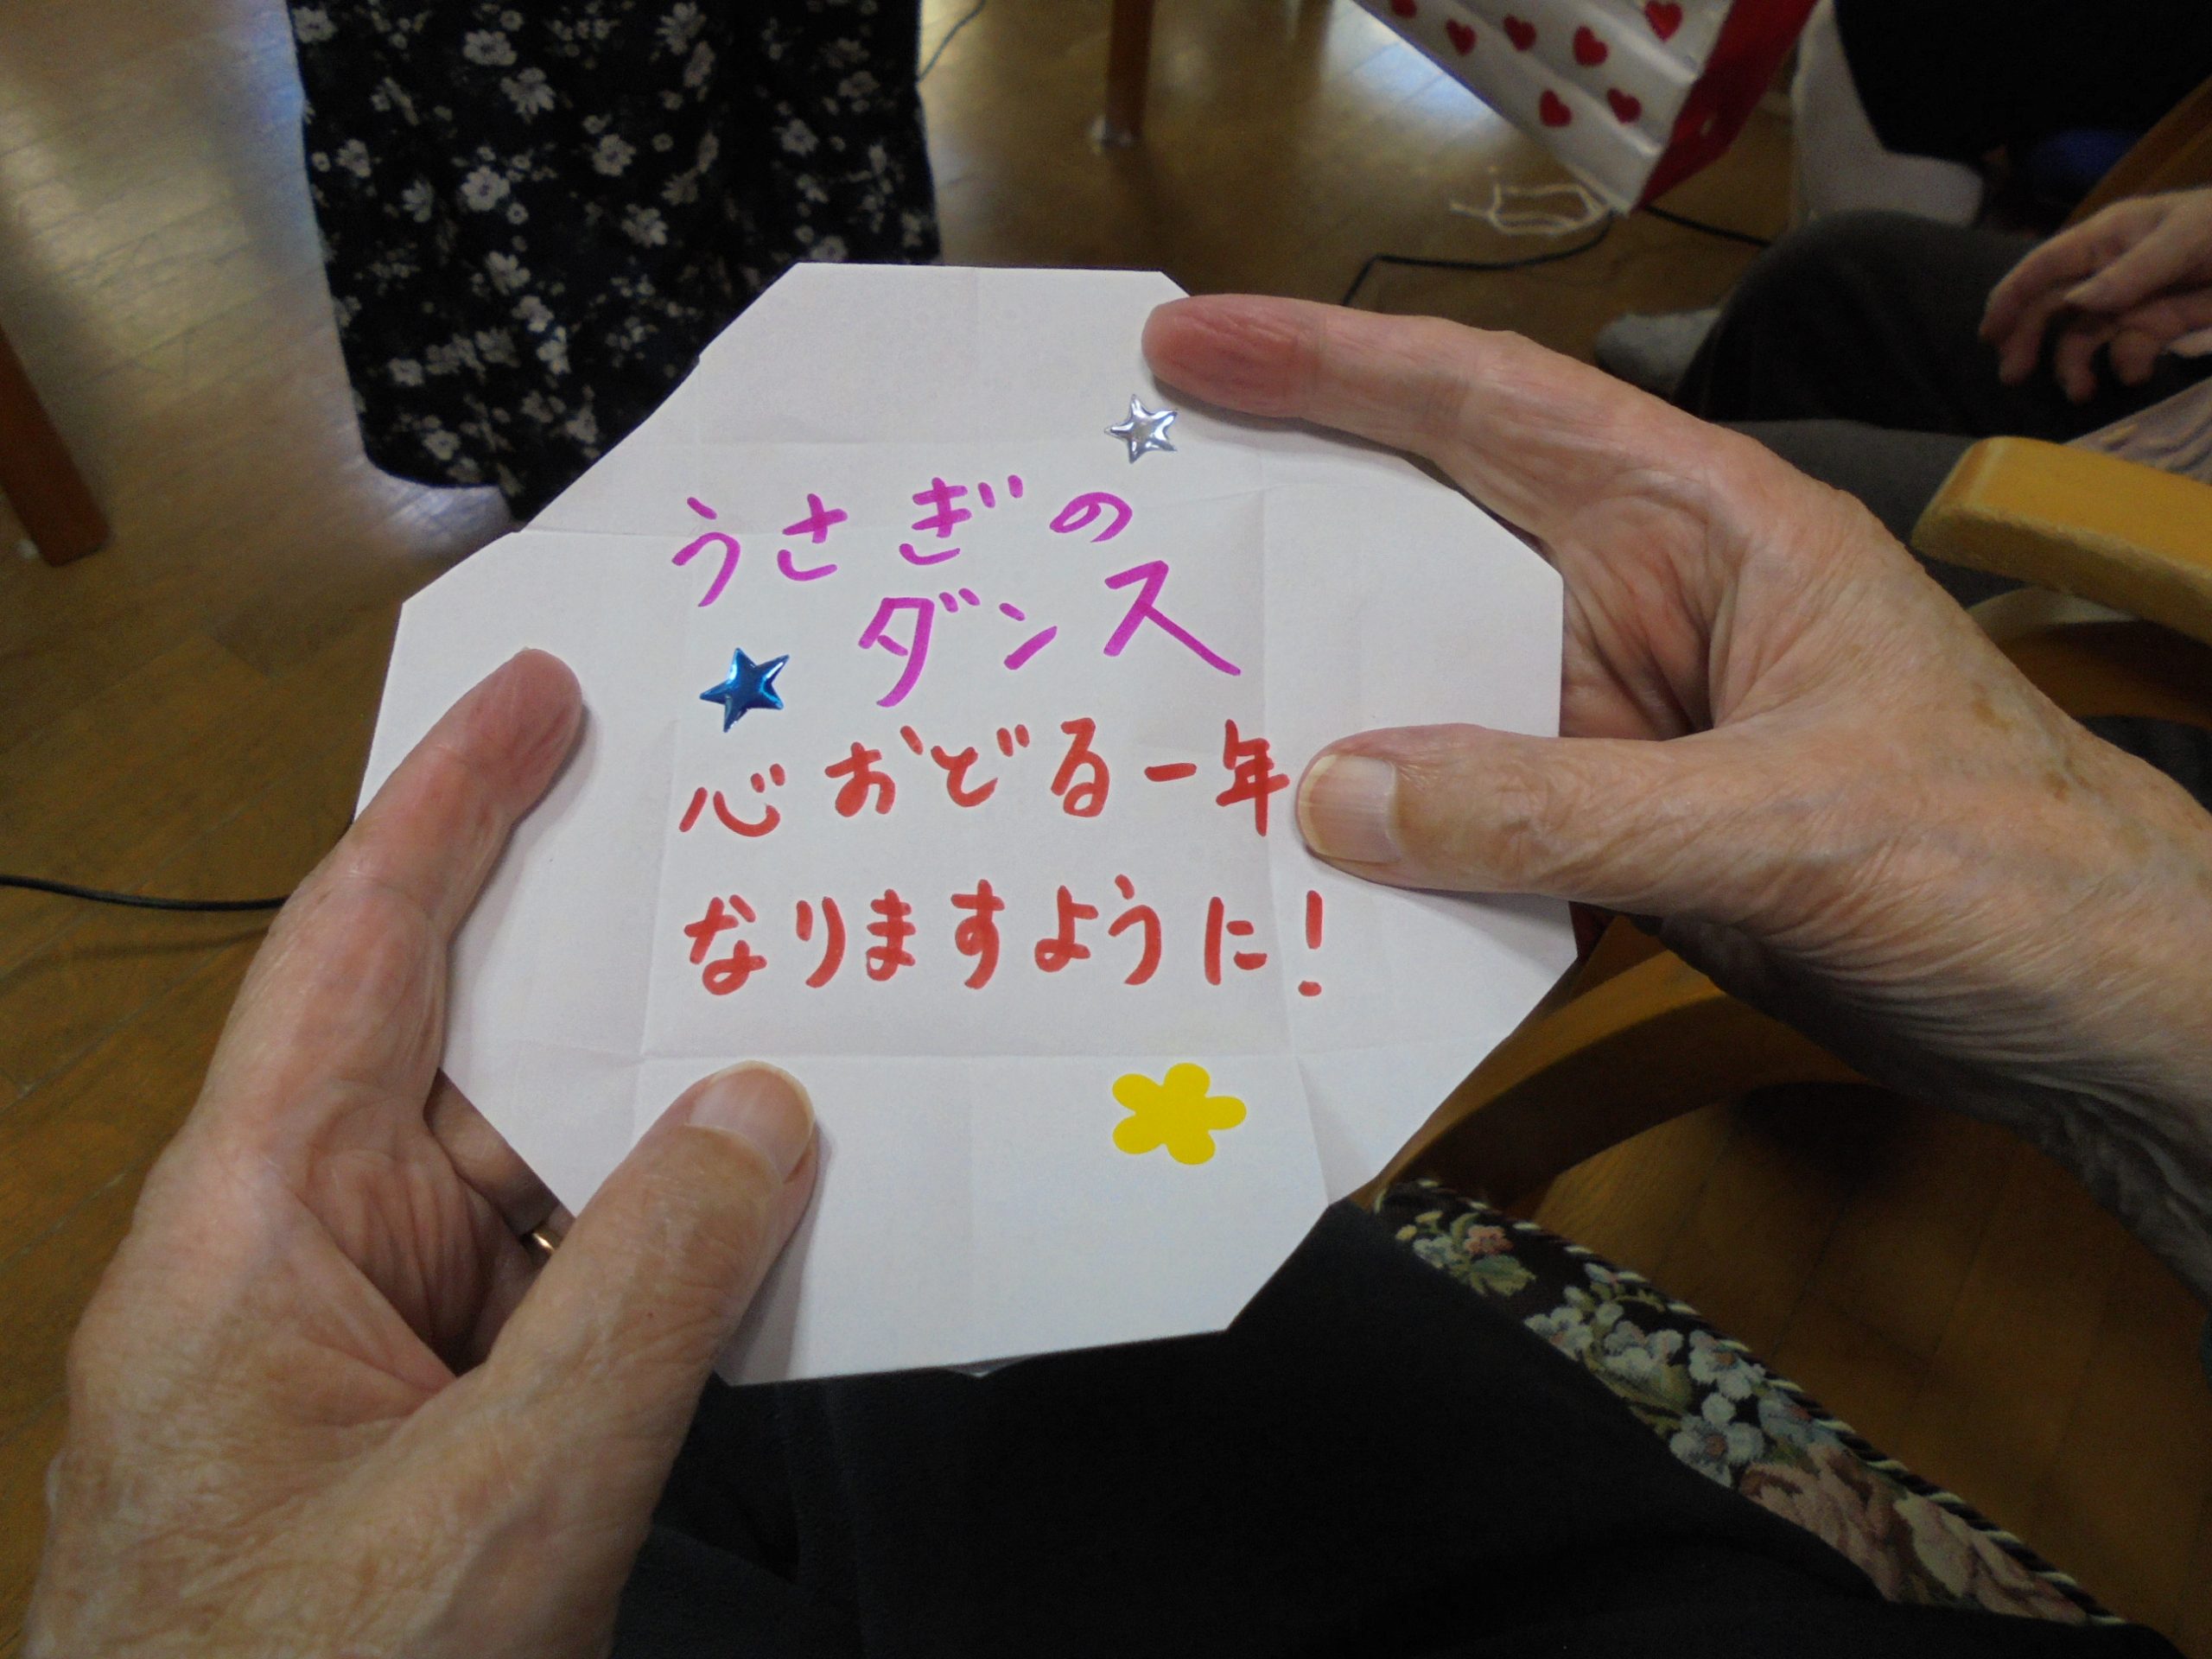 うさぎの
ダンス
心おどる一年
なりますように!